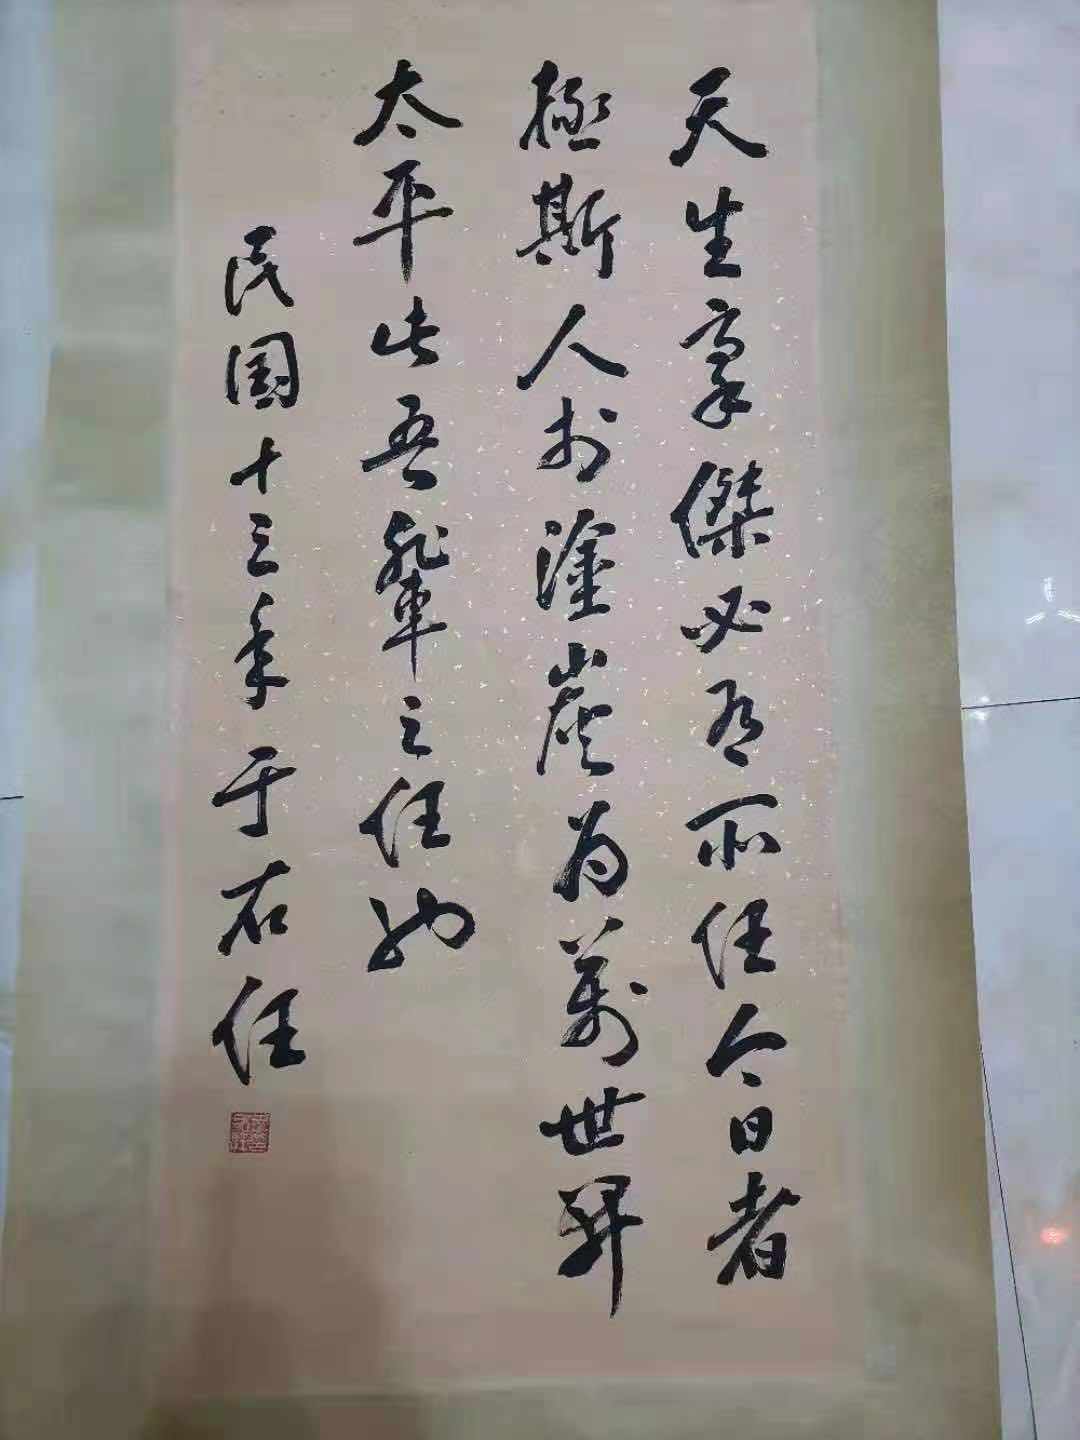 天生豪傑必有所任今日者
極斯人於塗炭为萬世開
太平此吾輩之任也
民国十三年于右任